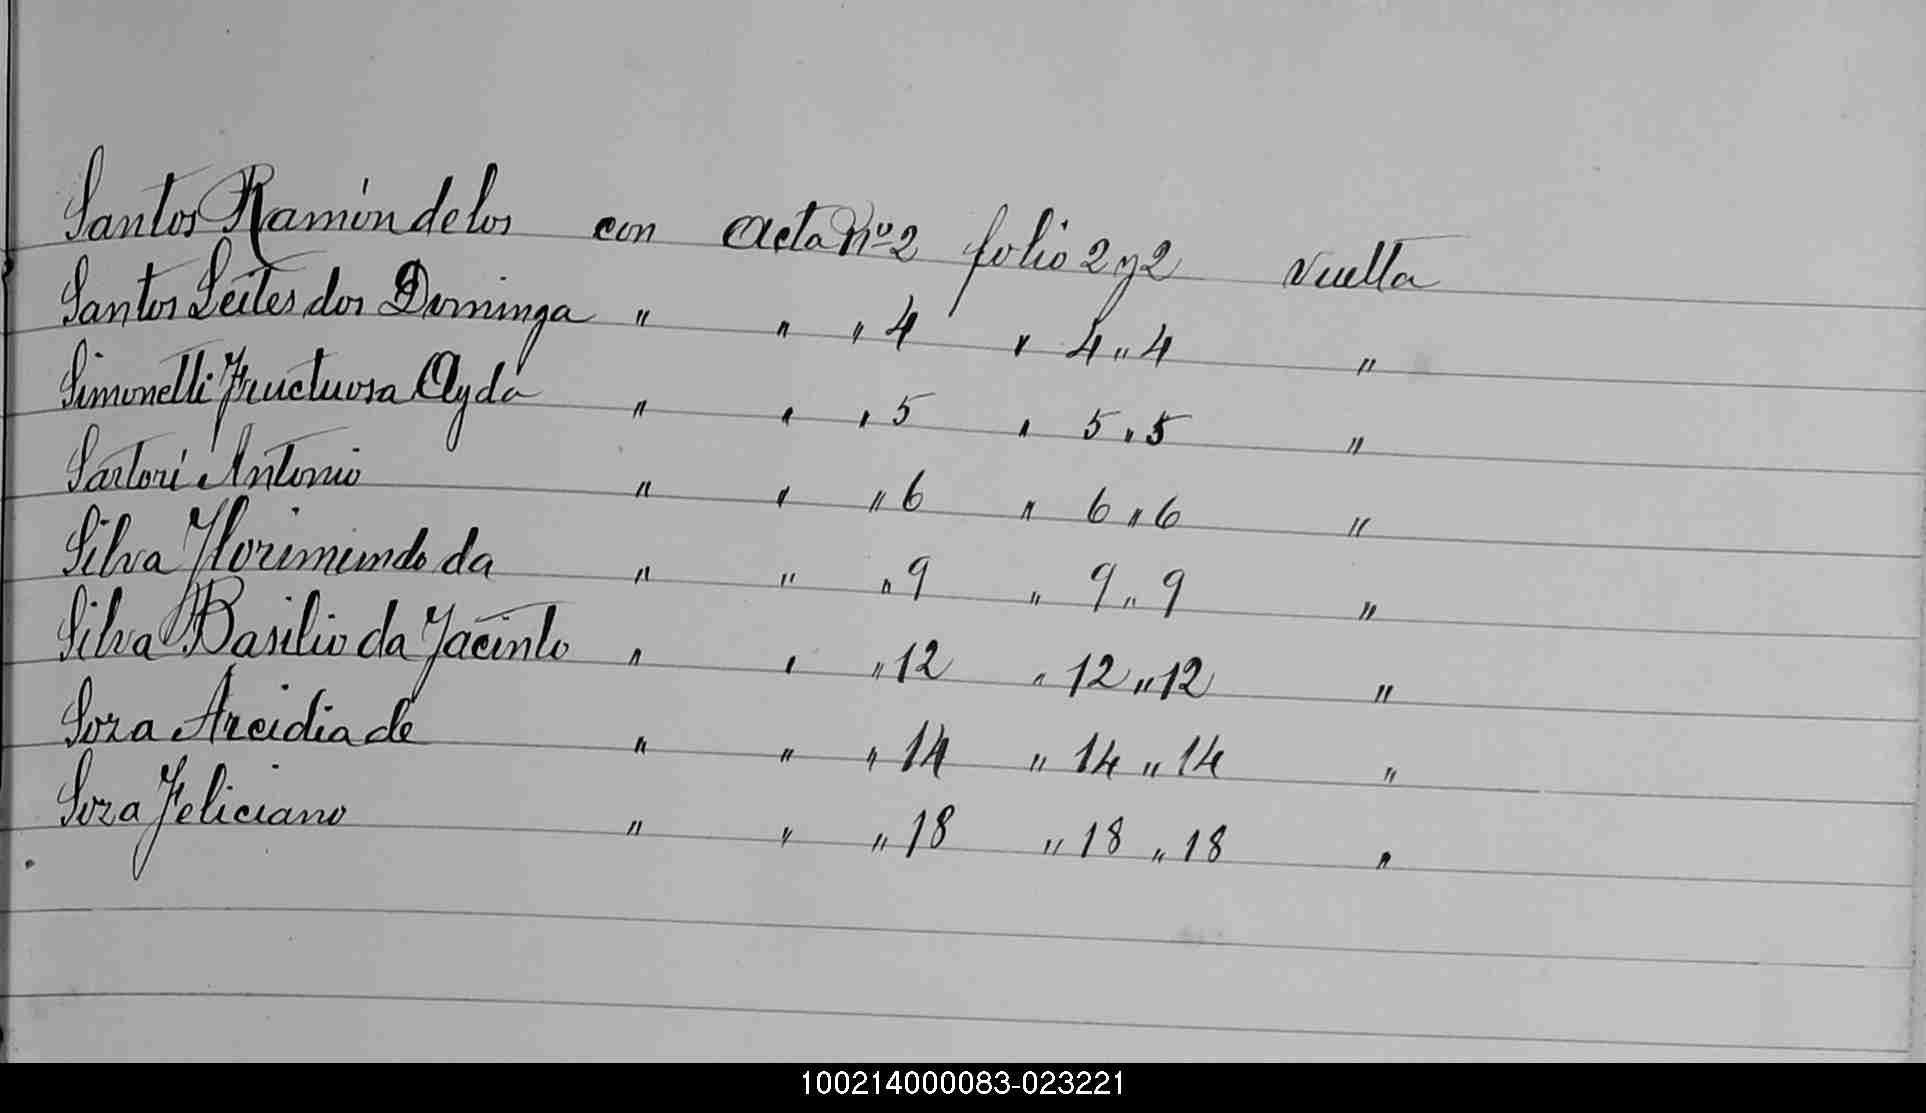 Santos Ramón de los con Acta Nº 2 folio 2 y 2 vuelta
Santos Leites dos Dominga " " " 4 " 4 " 4 "
Simonelli Fructuosa Ayda " " " 5 " 5 " 5 "
Sartori Antonio " " " 6 " 6 " 6 "
Silva Florimundo da " " " 9 " 9 " 9 "
Silva Basilio da Jacinto " " " 12 " 12 " 12 "
Soza Arcidia de " " " 14 " 14 " 14 "
Soza Feliciano " " " 18 " 18 " 18 "
100214000083-023221